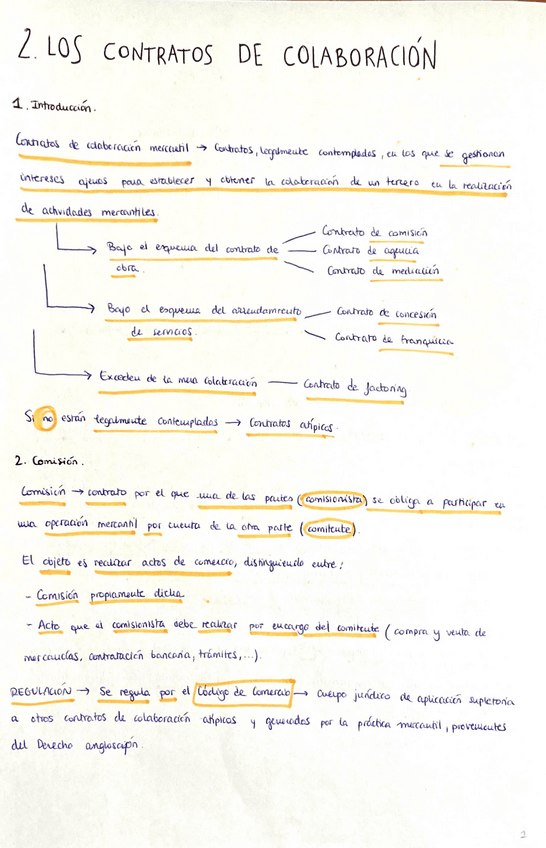 2. LOS CONTRATOS DE COLABORACIÓN
1. Introducción.
Contratos de colaboración mercantil → Contratos, legalmente contemplados, en los que se gestionan
intereses ajenos para establecer y obtener la colaboración de un tercero en la realización
de actividades mercantiles.
Bajo el esquema del contrato de
obra.
Contrato de comisión
Contrato de agencia
Contrato de mediación
Bajo el esquema del arrendamiento
de servicios.
Contrato de concesión
Contrato de franquicia
Exceden de la mera colaboración — Contrato de factoring
Si no están legalmente contemplados → Contratos atípicos.
2. Comisión.
Comisión → contrato por el que una de las partes (comisionista) se obliga a participar en
una operación mercantil por cuenta de la otra parte (comitente).
El objeto es realizar actos de comercio, distinguiendo entre:
- Comisión propiamente dicha
- Acto que el comisionista debe realizar por encargo del comitente (compra y venta de
mercancías, contratación bancaria, trámites,...).
REGULACIÓN → Se regula por el Código de Comercio → Cuerpo jurídico de aplicación supletoria
a otros contratos de colaboración atípicos y generados por la práctica mercantil, provenientes
del Derecho anglosajón.
2